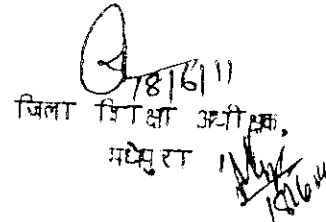 18|6|11
जिला शिक्षा अधीक्षक,
मधेपुरा
18/6/11